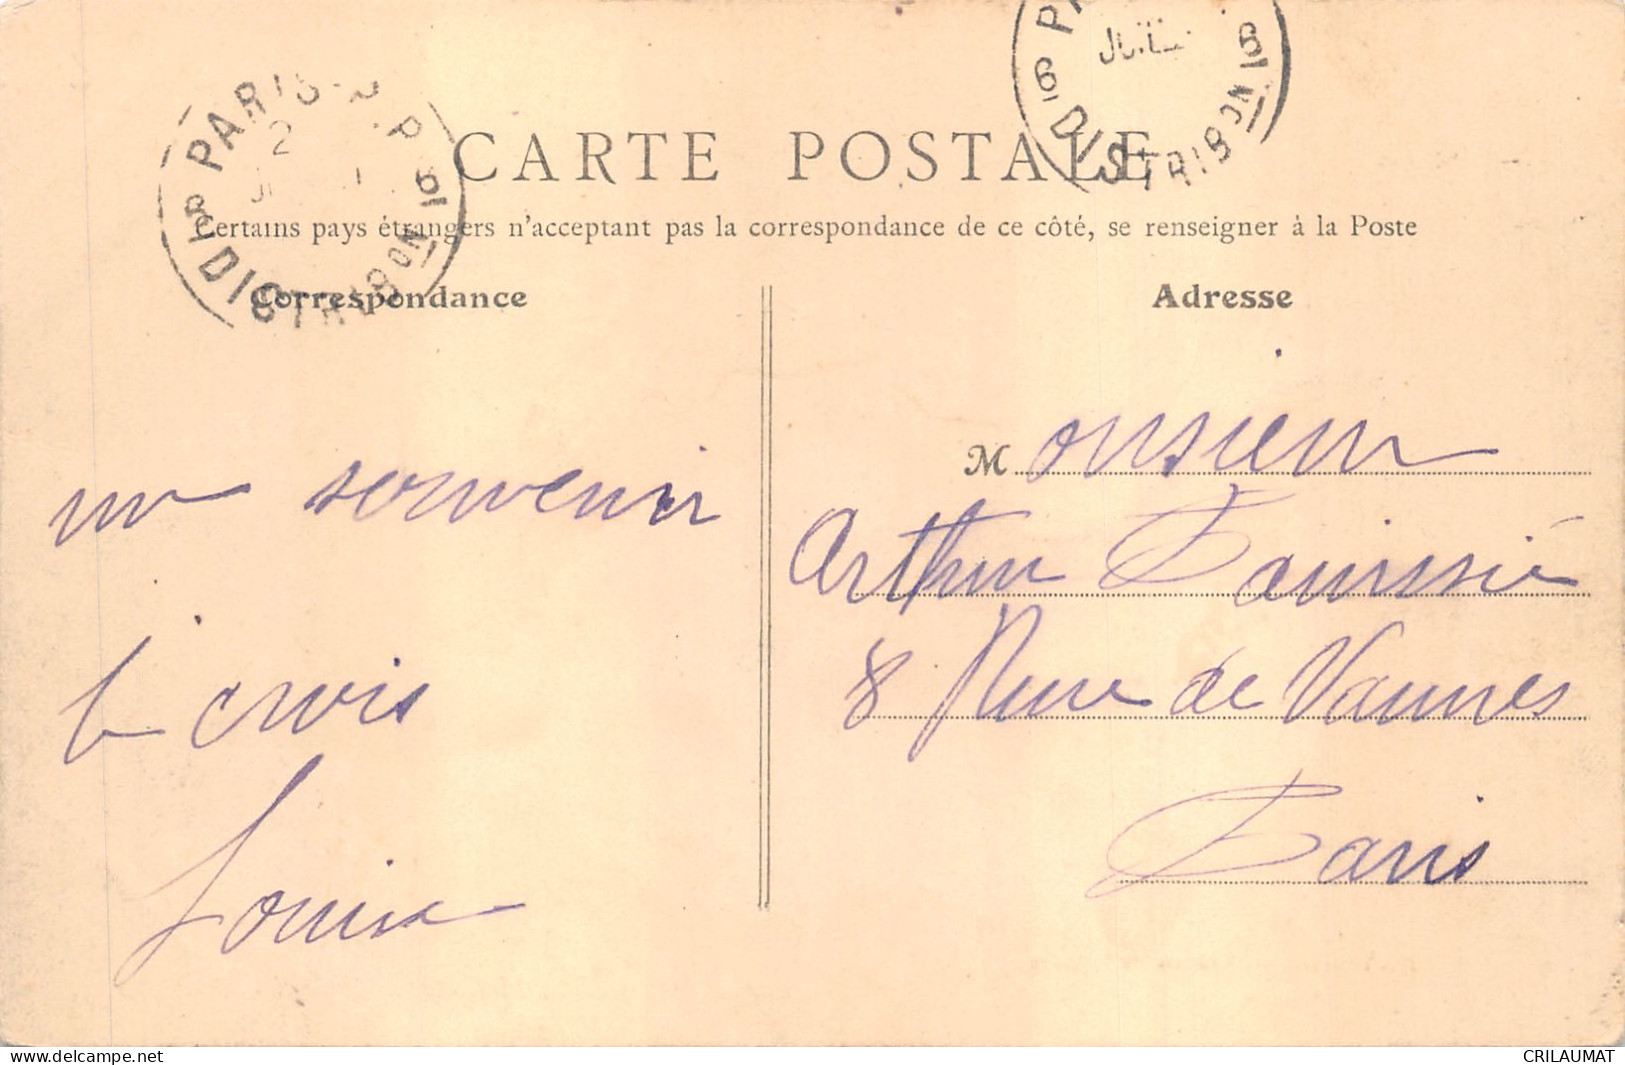 PARIS R.P.
2
DISTRIBON
PA
JUIL
6 DISTRIBON 6
CARTE POSTALE
Certains pays étrangers n'acceptant pas la correspondance de ce côté, se renseigner à la Poste
Correspondance
Adresse
un souvenir
Louise
Monsieur
Arthur
8 Rue de Vannes
Paris
CRILAUMAT